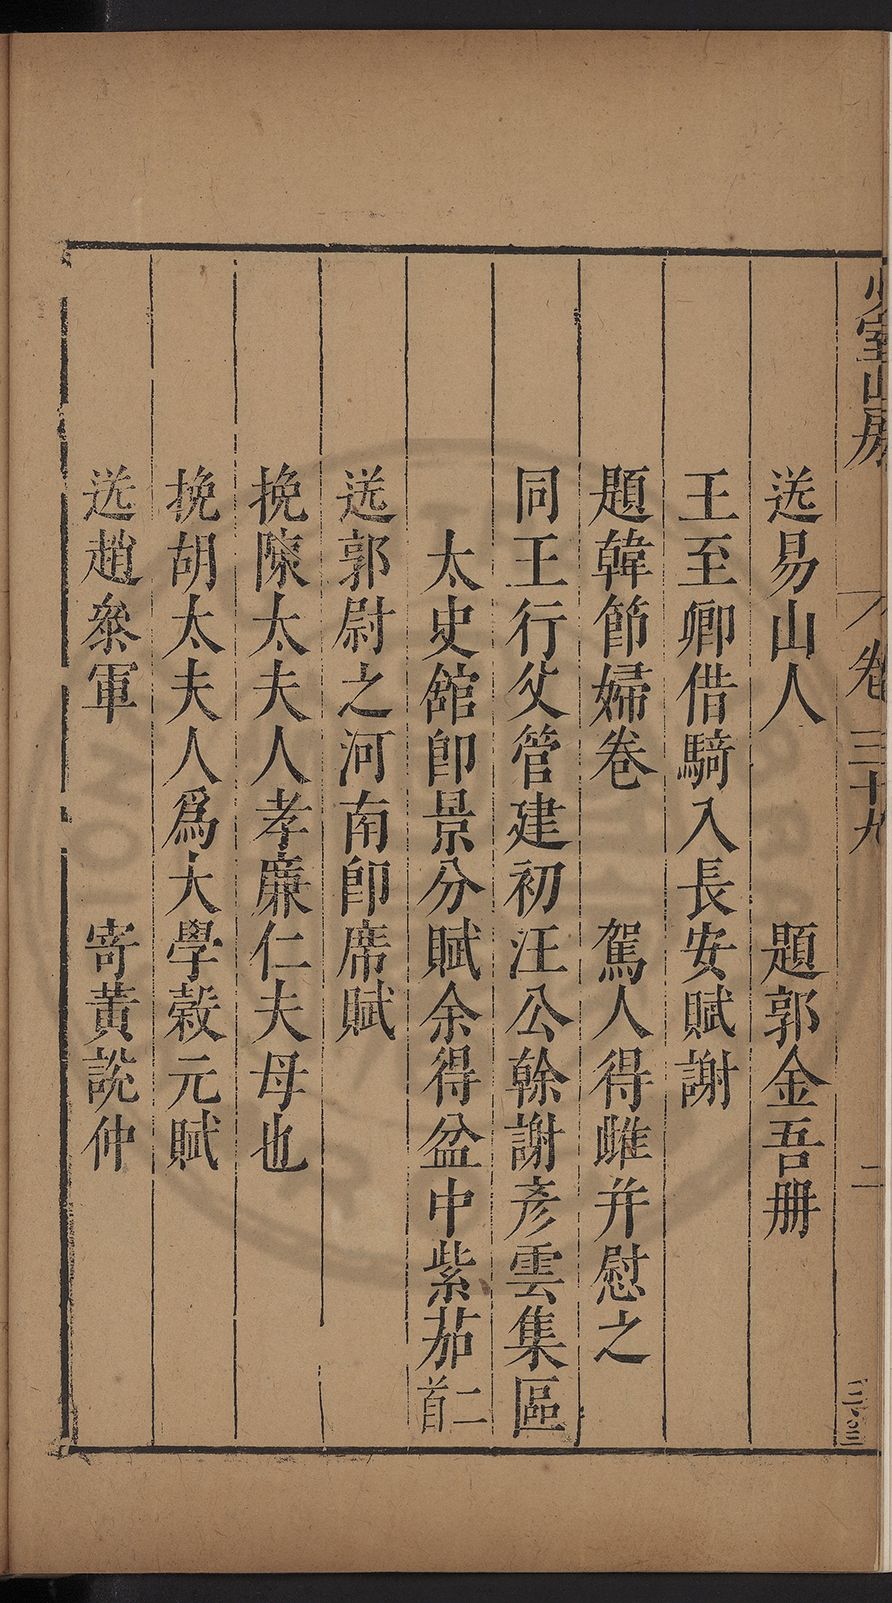 少室山房 卷三十九 二
送易山人 題郭金吾册
王至卿借騎入長安賦謝
題韓節婦卷 駕人得雌并慰之
同王行父管建初汪公榦謝彥雲集區
太史館卽景分賦余得盆中紫茄二首
送郭尉之河南卽席賦
挽陳太夫人孝廉仁夫母也
挽胡太夫人爲太學榖元賦
送趙叅軍 寄黃說仲